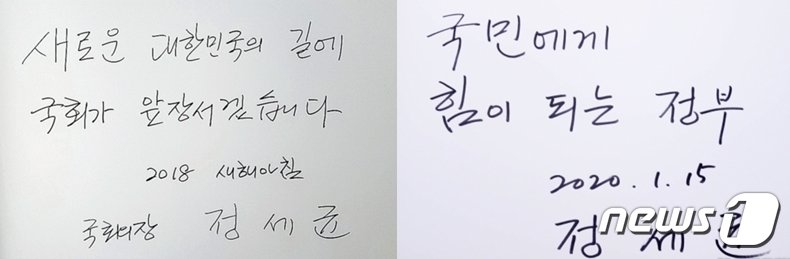 새로운 대한민국의 길에
국회가 앞장서겠습니다
2018 새해아침
국회의장 정세균
국민에게
힘이 되는 정부
2020. 1. 15
정세균
news1